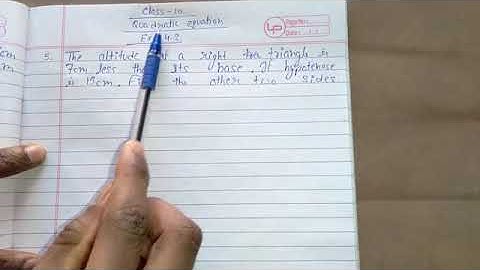 Class-10
Quadratic equation
Ex 4.3
5. The altitude of a right tra triangle is
7cm less than its base. If hypotenose
is 17cm. the other two sides